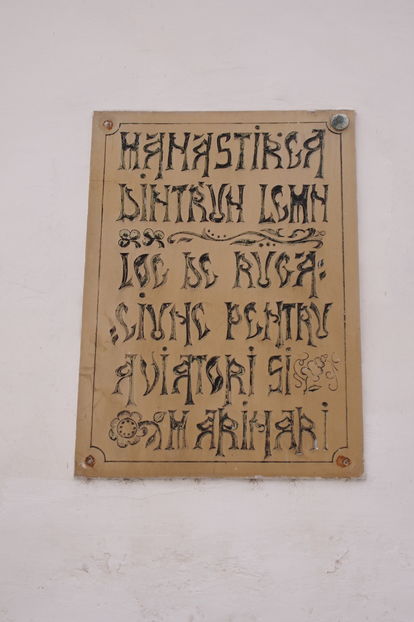 MANASTIREA
DINTRUN LEMN
LOC DE RUGĂ:
:CIUNE PENTRU
AVIATORI SI
MARINARI